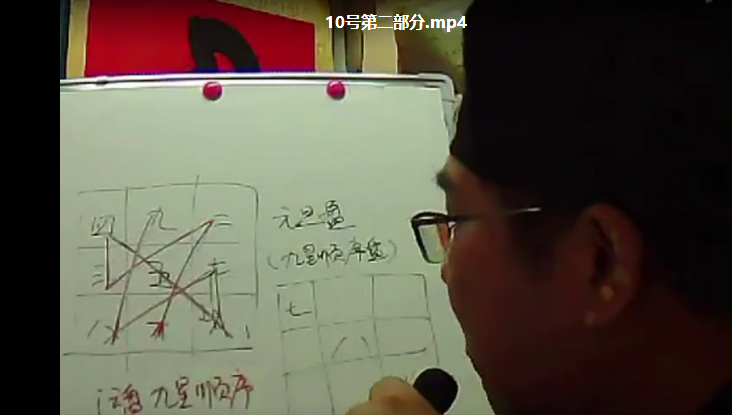 10号第二部分.mp4
四 九 二
元旦盘
三 五 七
(九星顺序盘)
八 一 六
七
八
记 九星顺序